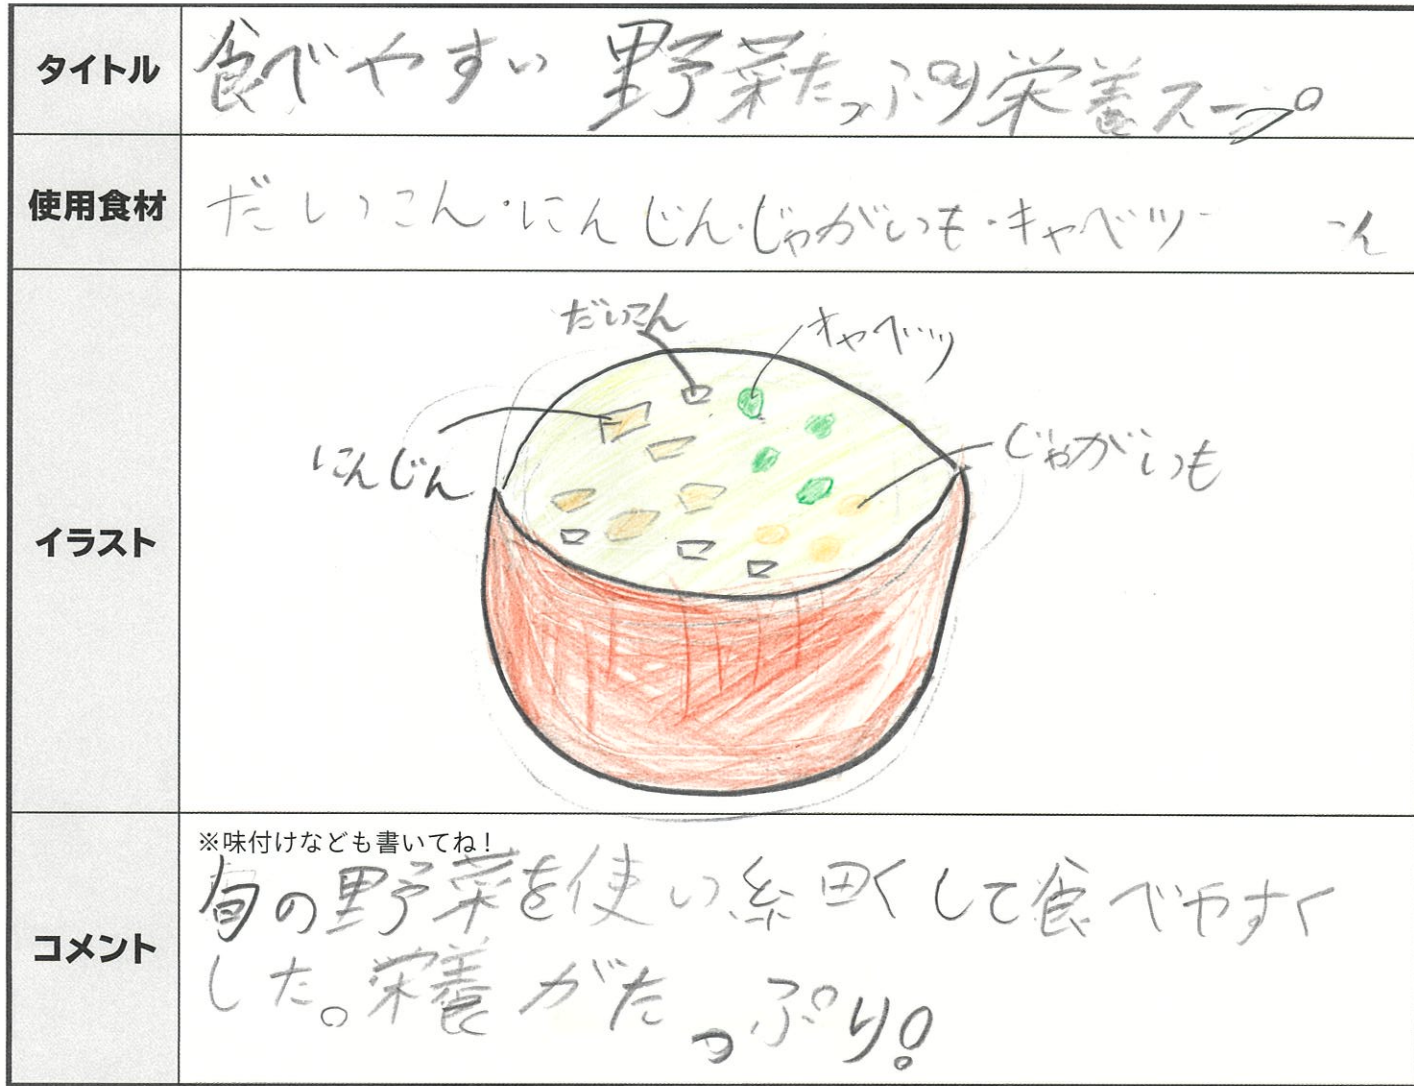 タイトル
食べやすい 野菜たっぷり栄養スープ
使用食材
だいこん・にんじん・じゃがいも・キャベツ
イラスト
だいこん
キャベツ
にんじん
じゃがいも
コメント
※味付けなども書いてね!
旬の野菜を使い細くして食べやすく
した。栄養がたっぷり!